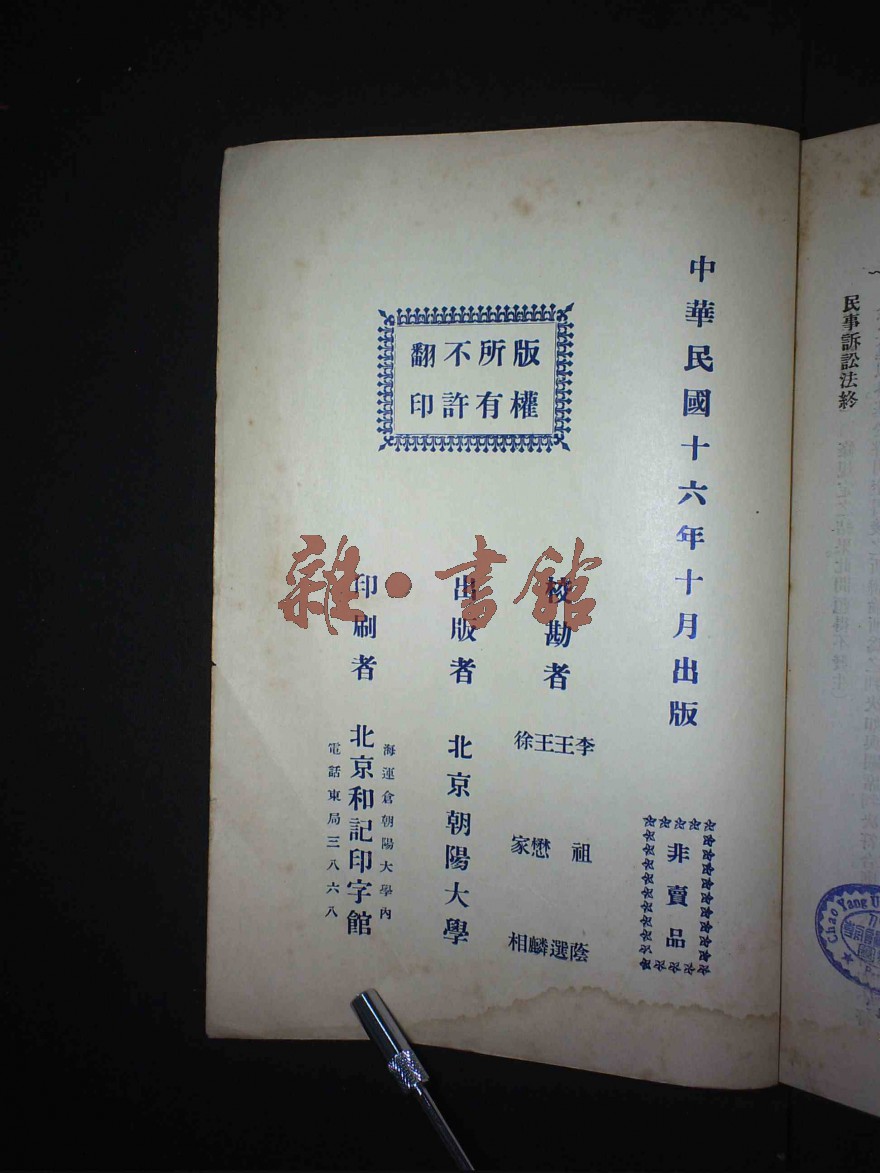 民事訴訟法終
Chao Yang U
中華民國十六年十月出版
非賣品
版權
所有
不許
翻印
校勘者
李祖蔭
王選
王懋麟
徐家相
出版者 北京朝陽大學
印刷者 北京和記印字館
海運倉朝陽大學內
電話東局三八六八
雜·書館